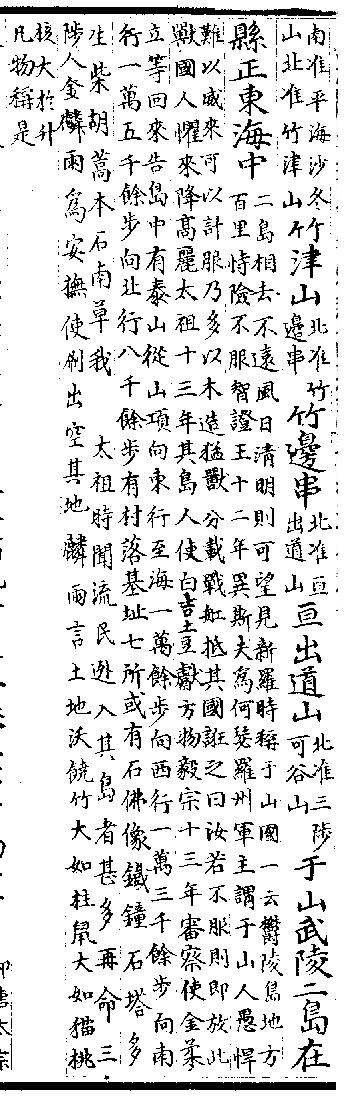 南准平海沙冬
山北准竹津山
竹津山
北准竹
邊串
竹邊串
北准亘
出道山
亘出道山
北准三陟
可谷山
于山武陵二島在
縣正東海中
二島相去不遠風日清明則可望見新羅時稱于山國一云鬱陵島地方
百里恃險不服智證王十二年異斯夫爲何瑟羅州軍主謂于山人愚悍
難以威來可以計服乃多以木造猛獸分載戰舡抵其國誑之曰汝若不服則即放此
獸國人懼來降高麗太祖十三年其島人使白吉土豆獻方物毅宗十三年審察使金柔
立等回來告島中有泰山從山頂向東行至海一萬餘步向西行一萬三千餘步向南
行一萬五千餘步向北行八千餘步有村落基址七所或有石佛像鐵鐘石塔多
生柴胡蒿本石南草我 太祖時聞流民逃入其島者甚多再命三
陟人金麟雨爲安撫使刷出空其地麟雨言土地沃饒竹大如柱鼠大如猫桃
核大於升
凡物稱是